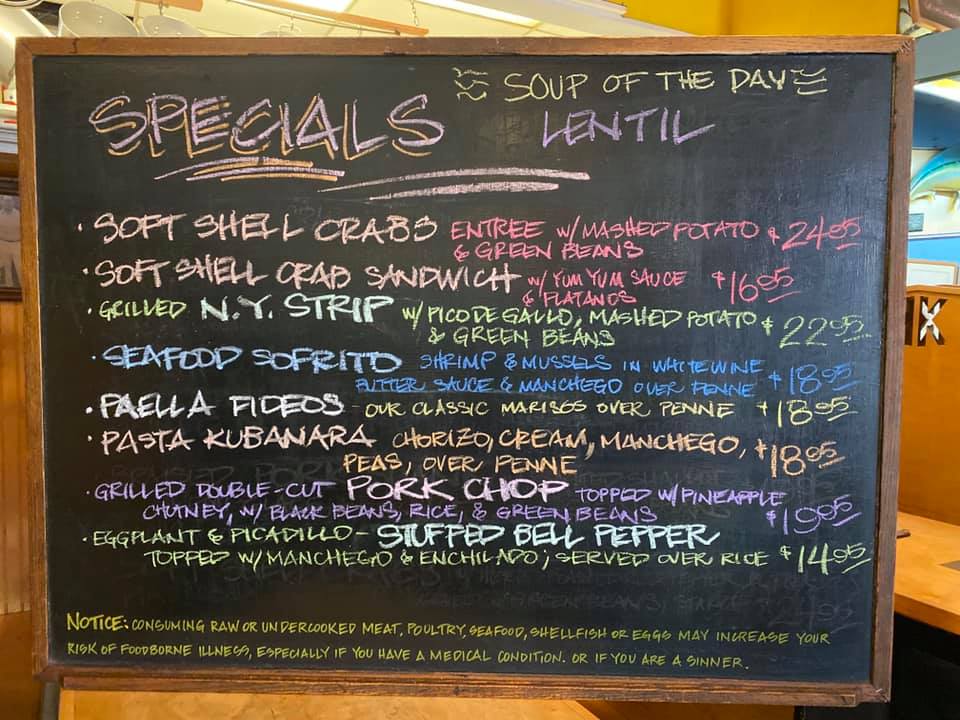 SOUP OF THE DAY
SPECIALS
LENTIL
· SOFT SHELL CRABS ENTREE W/ MASHED POTATO $24.95
& GREEN BEANS
· SOFT SHELL CRAB SANDWICH W/ YUM YUM SAUCE $16.95
& PLATANOS
· GRILLED N.Y. STRIP W/ PICO DE GALLO, MASHED POTATO $22.95
& GREEN BEANS
· SEAFOOD SOFRITO SHRIMP & MUSSELS IN WHITE WINE $18.95
BUTTER SAUCE & MANCHEGO OVER PENNE
· PAELLA FIDEOS - OUR CLASSIC MARISCOS OVER PENNE $18.95
· PASTA KUBANARA CHORIZO, CREAM, MANCHEGO, $18.95
PEAS, OVER PENNE
· GRILLED DOUBLE-CUT PORK CHOP TOPPED W/ PINEAPPLE
CHUTNEY, W/ BLACK BEANS, RICE, & GREEN BEANS $19.95
· EGGPLANT & PICADILLO - STUFFED BELL PEPPER
TOPPED W/ MANCHEGO & ENCHILADO; SERVED OVER RICE $14.95
NOTICE: CONSUMING RAW OR UNDERCOOKED MEAT, POULTRY, SEAFOOD, SHELLFISH OR EGGS MAY INCREASE YOUR
RISK OF FOODBORNE ILLNESS, ESPECIALLY IF YOU HAVE A MEDICAL CONDITION. OR IF YOU ARE A SINNER.